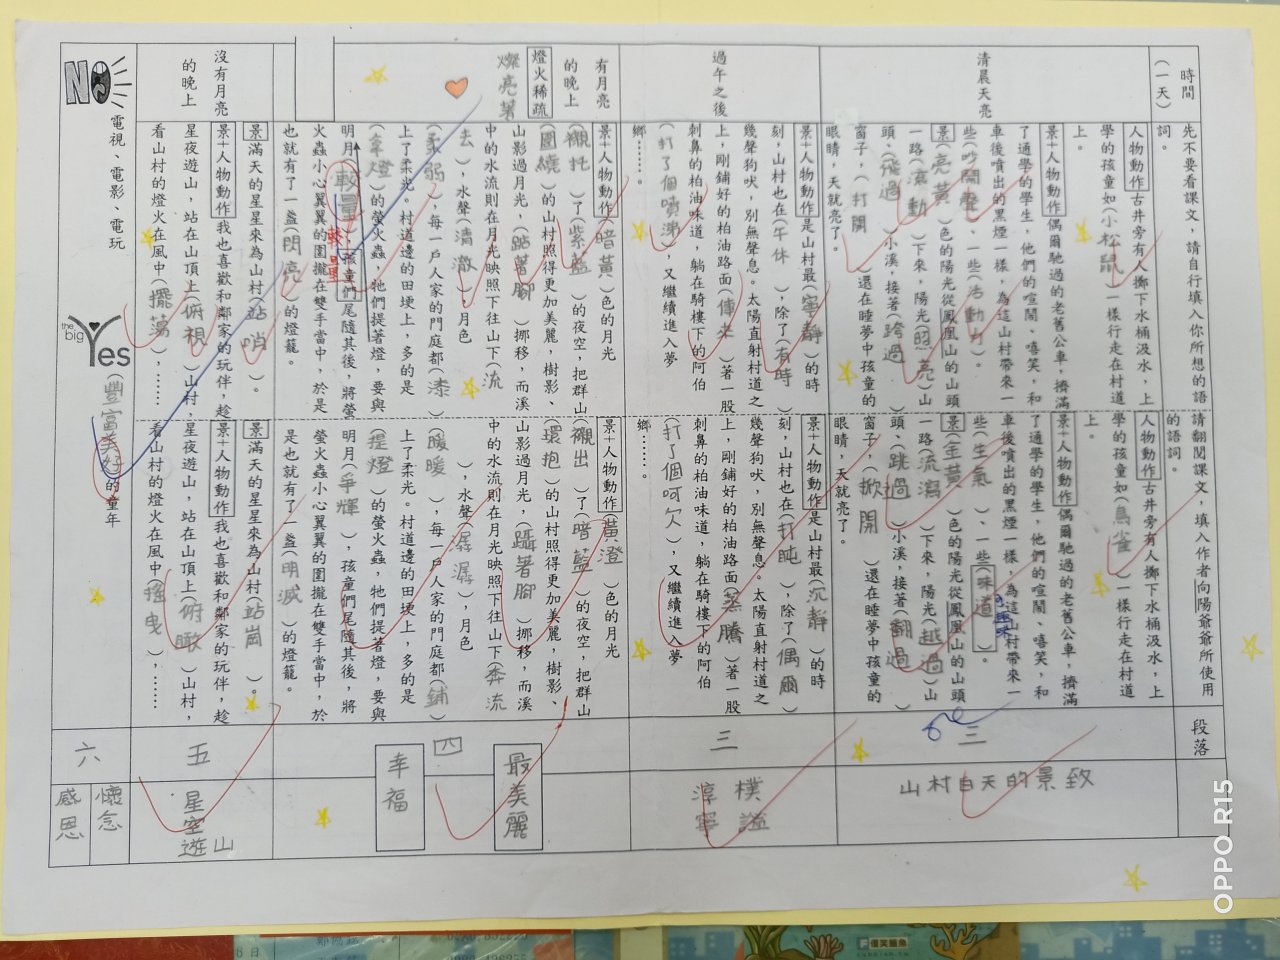 時間
(一天)
先不要看課文，請自行填入你所想的語
詞。
請翻閱課文，填入作者向陽爺爺所使用
的語詞。
段落
清晨天亮
人物動作 古井旁有人擲下水桶汲水，上
學的孩童如(小松鼠)一樣行走在村道
上。
景+人物動作 偶爾馳過的老舊公車，擠滿
了通學的學生，他們的喧鬧、嘻笑，和
車後噴出的黑煙一樣，為這山村帶來一
些(吵鬧聲)、一些(活動力)。
景(亮黃)色的陽光從鳳凰山的山頭
一路(滾動)下來，陽光(照亮)山
頭、(飛過)小溪，接著(跨過)
窗子，(打開)還在睡夢中孩童的
眼睛，天就亮了。
人物動作 古井旁有人擲下水桶汲水，上
學的孩童如(鳥雀)一樣行走在村道
上。
景+人物動作 偶爾馳過的老舊公車，擠滿
了通學的學生，他們的喧鬧、嘻笑，和
車後噴出的黑煙一樣，為這山村帶來一
些(生氣)、一些(味道)。
趣味
景(金黃)色的陽光從鳳凰山的山頭
一路(流瀉)下來，陽光(越過)山
頭、(跳過)小溪，接著(翻過)
窗子，(掀開)還在睡夢中孩童的
眼睛，天就亮了。
三
山村白天的景致
過午之後
景+人物動作 是山村最(寧靜)的時
刻，山村也在(午休)，除了(有時)
幾聲狗吠，別無聲息。太陽直射村道之
上，剛鋪好的柏油路面(傳來)著一股
刺鼻的柏油味道，躺在騎樓下的阿伯
(打了個噴涕)，又繼續進入夢
鄉……。
景+人物動作 是山村最(沉靜)的時
刻，山村也在(打盹)，除了(偶爾)
幾聲狗吠，別無聲息。太陽直射村道之
上，剛鋪好的柏油路面(蒸騰)著一股
刺鼻的柏油味道，躺在騎樓下的阿伯
(打了個呵欠)，又繼續進入夢
鄉……。
三
樸謐
淳寧
有月亮
的晚上
燈火稀疏
燦亮著
景+人物動作(暗黃)色的月光
(襯托)了(紫藍)的夜空，把群山
(圍繞)的山村照得更加美麗，樹影、
山影過月光，(踮著腳)挪移，而溪
中的水流則在月光映照下往山下(流
去)，水聲(清澈)，月色
(柔弱)，每一戶人家的門庭都(漆)
上了柔光。村道邊的田埂上，多的是
(拿燈)的螢火蟲，牠們提著燈，要與
明月(較量)，孩童們尾隨其後，將螢
較量
火蟲小心翼翼的圍攏在雙手當中，於是
也就有了一盞(閃亮)的燈籠。
景+人物動作(黃澄)色的月光
(襯出)了(暗藍)的夜空，把群山
(環抱)的山村照得更加美麗，樹影、
山影過月光，(躡著腳)挪移，而溪
中的水流則在月光映照下往山下(奔流
)，水聲(潺潺)，月色
(暖暖)，每一戶人家的門庭都(鋪)
上了柔光。村道邊的田埂上，多的是
(提燈)的螢火蟲，牠們提著燈，要與
明月(爭輝)，孩童們尾隨其後，將
螢火蟲小心翼翼的圍攏在雙手當中，於
是也就有了一盞(明滅)的燈籠。
四
最美麗
幸福
沒有月亮
的晚上
景 滿天的星星來為山村(站哨)。
景+人物動作 我也喜歡和鄰家的玩伴，趁
星夜遊山，站在山頂上(俯視)山村，
看山村的燈火在風中(擺蕩)，……
景 滿天的星星來為山村(站崗)。
景+人物動作 我也喜歡和鄰家的玩伴，趁
星夜遊山，站在山頂上(俯瞰)山村，
看山村的燈火在風中(搖曳)，……
五
星空遊山
NO
電視、電影、電玩
the big Yes
(豐富美好)的童年
六
懷念
感恩
OPPO R15